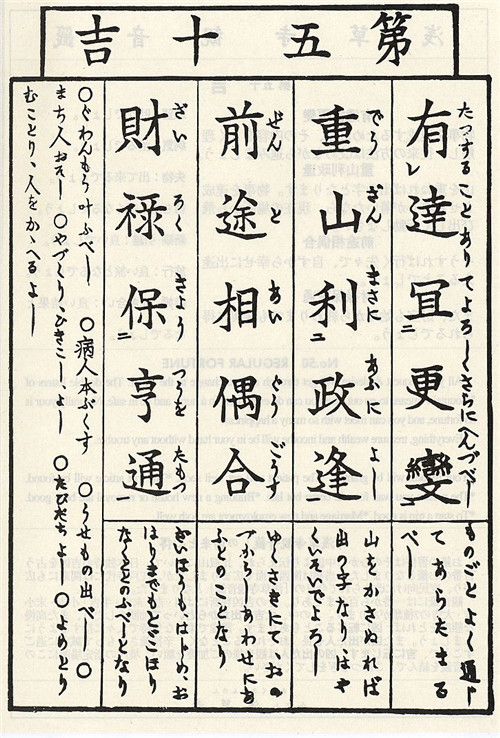 第五十吉
たつすることありてよろしくさらにへんづべし
有レ達冝二更變
ものごとよく通じ
てあらたまる
べし
でうさんまさにあふによし
重山利二政逢
山をかさぬれば
出の字なり、はや
くいそいでよろし
ぜんとあいぐうごう
前途相偶合
ゆくさきにておの
づからしあわせにあ
ふとのことなり
ざいろきようをたもつ
財禄保二亨通
はじめ、お
はりまでもとどこほり
なくとのふべしとなり
〇ぐわんもう叶ふべし 〇病人本ぷくす 〇うせもの出べし 〇
まち人おそし 〇やづくり、ひきこしよし 〇たびだちよし 〇よめとり
むことり、人をかゝへるよし